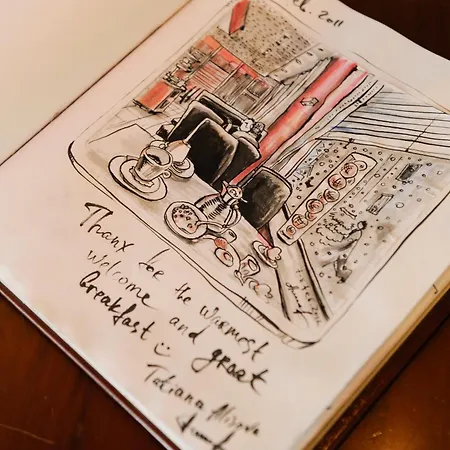 2011
Thanx for the warmest
welcome and great
breakfast :)
Tatiana